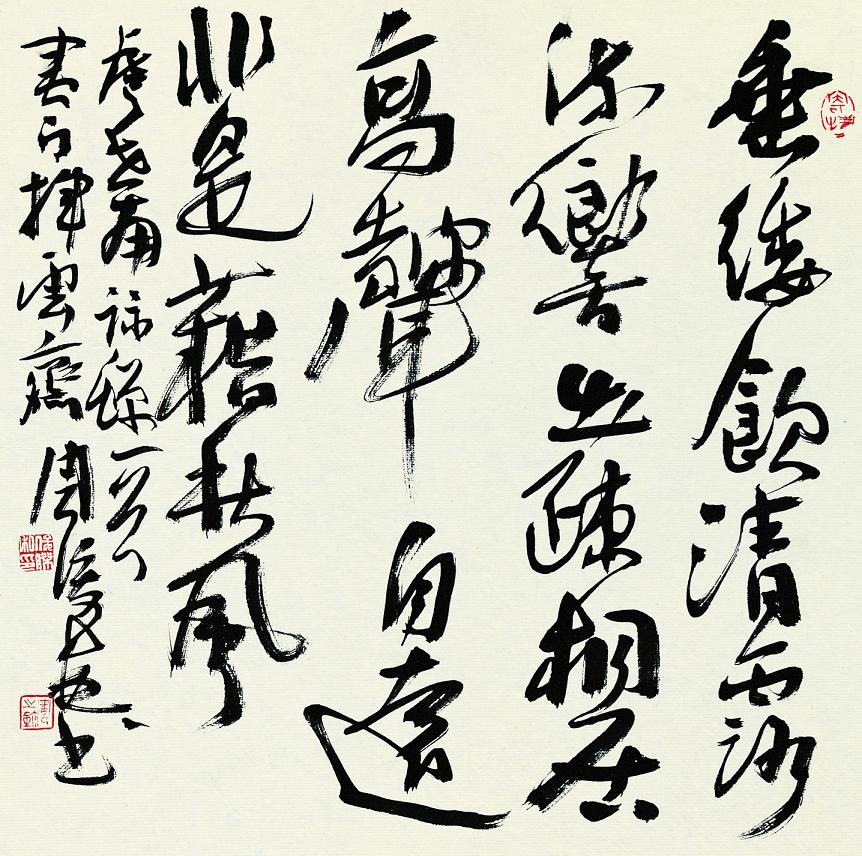 垂緌飲清露
流響出疎桐居
高聲自遠
非是藉秋風
虞世南詠蟬一首
書於揮雲齋周俊杰